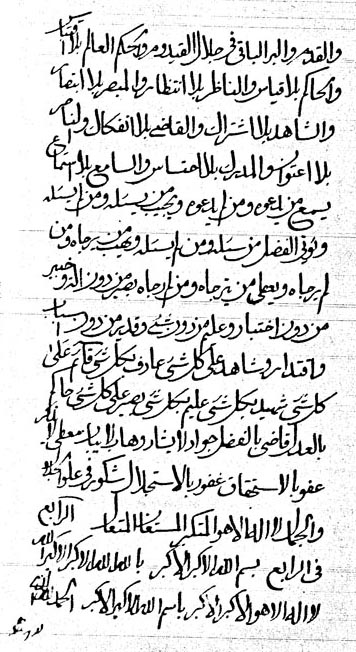 والقديم والبر الباقي في جلال القيدوم والحكم العالم بلا
والحاكم بلا قياس والناظر بلا انتظار والمبصر بلا ابصار
والشاهد بلا اشتراك والقاضي بلا انفكاك والناصر
بلا اعوان والمدرك بلا احتساس والسامع بلا اسماع
يسمع من يدعوه ومن لم يدعوه ويجيب من يسئله ومن لم يسئله
ويؤتي الفضل من يسئله ومن لم يسئله ويهب من يرجاه ومن
لم يرجاه ويعطي من يرجاه ومن لم يرجاه بصير من دون وخبير
من دون اختبار وعليم من دون شيء وقدير من دون
واقتدار وشاهد على كل شيء عارف بكل شيء قائم على
كل شيء شهيد بكل شيء عليم بكل شيء بصير على كل شيء حاكم
بالعدل قاضي بالفضل جواد وهاب معطي
عفو بالاستحقاق غفور بالاستجلال شكور في علو
والجمال لا اله الا هو المتكبر المتعال الرابع
في الرابع بسم الله الاكبر الاكبر بالله الله الاكبر الاكبر الله
لا اله الا هو الاكبر الاكبر باسم الله الاكبر الاكبر الحمد لله